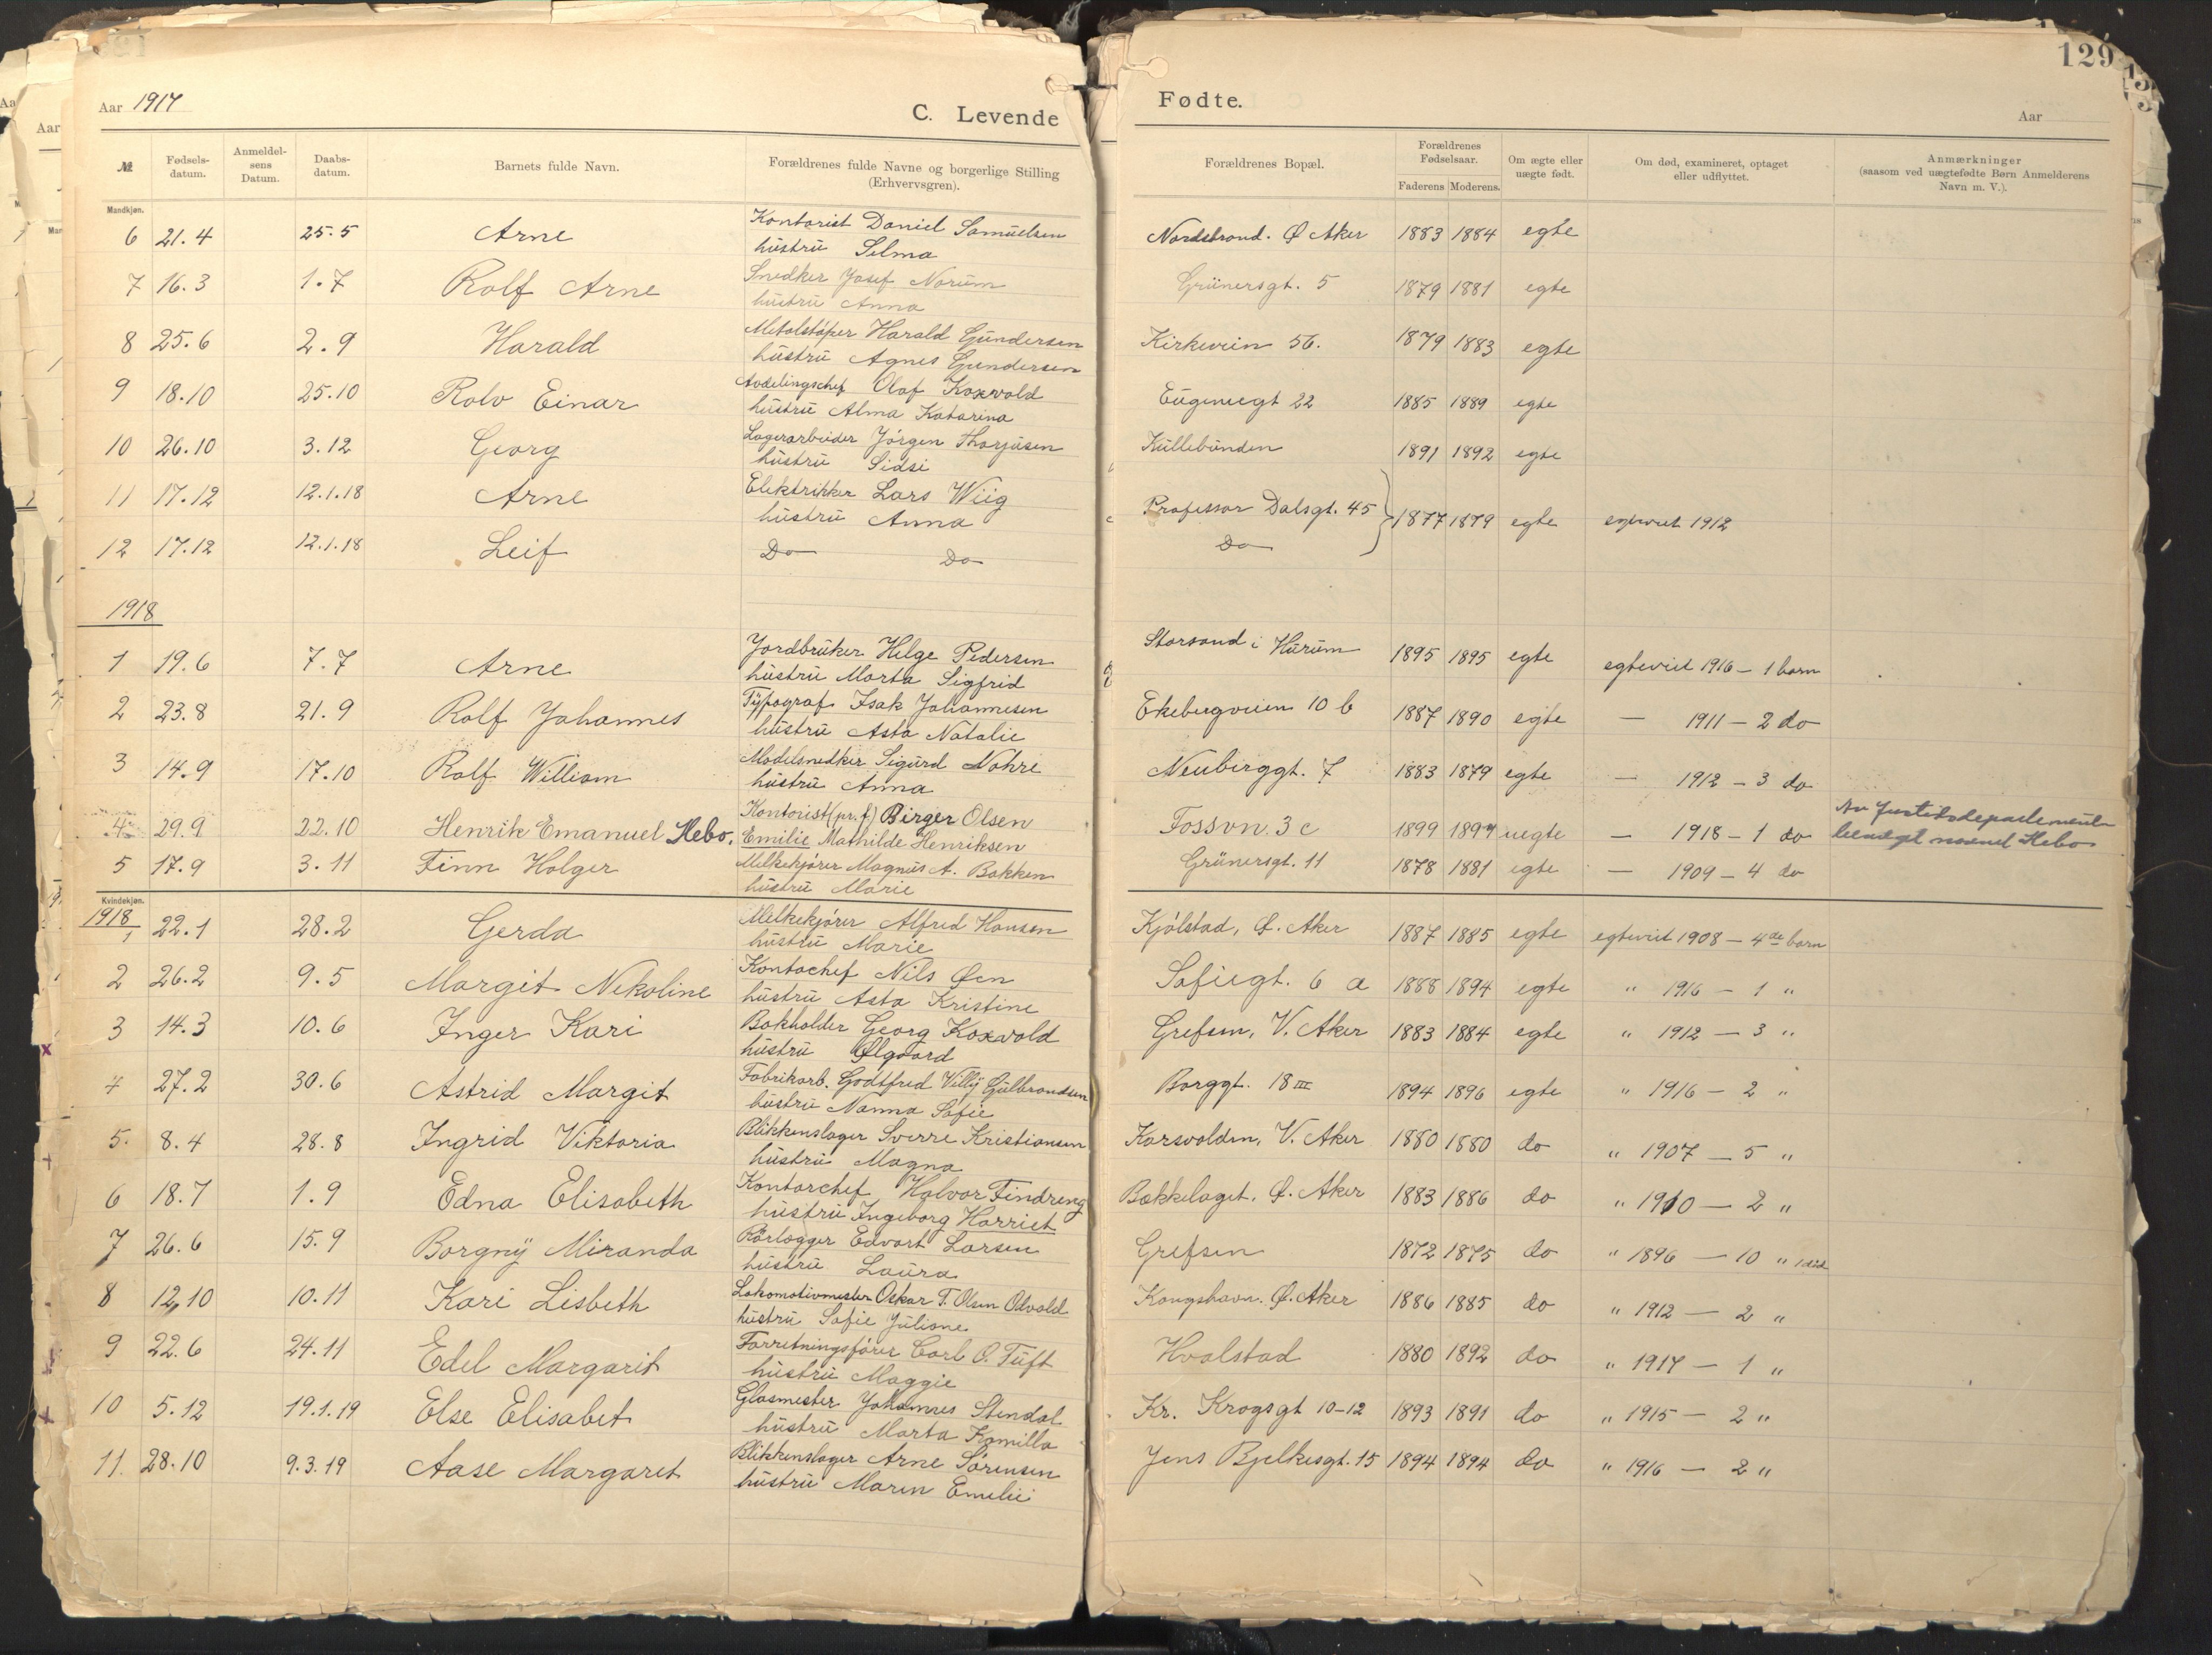 129
Aar 1917
C. Levende
Fødte.
Aar
№
Fødsels-
datum.
Anmeldel-
sens
Datum.
Daabs-
datum.
Barnets fulde Navn.
Forældrenes fulde Navne og borgerlige Stilling
(Erhvervsgren).
Forældrenes Bopæl.
Forældrenes
Fødselsaar.
Faderens Moderens.
Om ægte eller
uægte født.
Om død, examineret, optaget
eller udflyttet.
Anmærkninger
(saasom ved uægtefødte Børn Anmelderens
Navn m. V.).
Mandkjøn.
6 21.4 25.5 Arne Kontorist Daniel Samuelsen Nordstrand. Ø Aker 1883 1884 egte
hustru Selma
7 16.3 1.7 Rolf Arne Snedker Josef Norum Grünersgt. 5 1879 1881 egte
hustru Anna
8 25.6 2.9 Harald Metalstøper Harald Gundersen Kirkeveien 56. 1879 1883 egte
hustru Agnes Gundersen
9 18.10 25.10 Rolv Einar Avdelingschef Olaf Koxvold Eugeniesgt 22 1885 1889 egte
hustru Alma Katarina
10 26.10 3.12 Georg Lagerarbeider Jørgen Thorjusen Kullebunden 1891 1892 egte
hustru Sidsi
11 17.12 12.1.18 Arne Elektrikker Lars Wiig Professor Dalsgt. 45 1877 1879 egte egteviet 1912
hustru Anna
12 17.12 12.1.18 Leif Do Do Do
1918
1 19.6 7.7 Arne Jordbruker Helge Pedersen Storsand i Hurum 1895 1895 egte egteviet 1916 - 1 barn
hustru Marta Sigfrid
2 23.8 21.9 Rolf Johannes Typograf Isak Johannesen Ekebergveien 10 b 1887 1890 egte — 1911 - 2 do
hustru Asta Natalie
3 14.9 17.10 Rolf William Modelsnedker Sigurd Nohre Neuberggt. 7 1883 1879 egte — 1912 - 3 do
hustru Anna
4 29.9 22.10 Henrik Emanuel Hebo. Kontorist (pr. f.) Birger Olsen Fossvn. 3 c 1899 1897 uegte — 1918 - 1 do Av Justitsdepartement
Emilie Mathilde Henriksen navnet Hebo
5 17.9 3.11 Finn Holger Melkekjører Magnus A. Bakken Grünersgt. 11 1878 1881 egte — 1909 - 4 do
hustru Marie
Kvindekjøn.
1918
1 22.1 28.2 Gerda Melkekjører Alfred Hansen Kjølstad, Ø. Aker 1887 1885 egte egteviet 1908 - 4de barn
hustru Marie
2 26.2 9.5 Margit Nekoline Kontochef Nils Øen Sofiegt. 6 a 1888 1894 egte " 1916 - 1 "
hustru Asta Kristine
3 14.3 10.6 Inger Kari Bokholder Georg Koxvold Grefsen, V. Aker 1883 1884 egte " 1912 - 3 "
hustru Ølgaard
4 27.2 30.6 Astrid Margit Fabrikarb. Godtfred Villy Gulbrandsen Borggt. 18 III 1894 1896 egte " 1916 - 2 "
hustru Nanna Sofie
5. 8.4 28.8 Ingrid Viktoria Blikkenslager Sverre Kristiansen Korsvolden, V. Aker 1880 1880 do " 1907 - 5 "
hustru Magna
6 18.7 1.9 Edna Elisabeth Kontorchef Halvor Tindreng Bækkelaget. Ø. Aker 1883 1886 do " 1910 - 2 "
hustru Ingeborg Harriet
7 26.6 15.9 Borgny Miranda Rørlægger Edvart Larsen Grefsen 1872 1875 do " 1896 - 10 " 1 død
hustru Laura
8 12,10 10.11 Kari Lisbeth Lokomotivmester Oskar T. Olsen Odvold Kongshavn. Ø. Aker 1886 1885 do " 1912 - 2 "
hustru Sofie Juliane
9 22.6 24.11 Edel Margarit Forretningsfører Carl O. Tuft Hvalstad 1880 1892 do " 1917 - 1 "
hustru Maggie
10 5.12 19.1.19 Else Elisabet Glasmester Johannes Stendal Kr. Krogsgt 10-12 1893 1891 do " 1915 - 2 "
hustru Marta Kamilla
11. 28.10 9.3.19 Aase Margaret Blikkenslager Arne Sørensen Jens Bjelkesgt. 15 1894 1894 do " 1916 - 2 "
hustru Maren Emilie